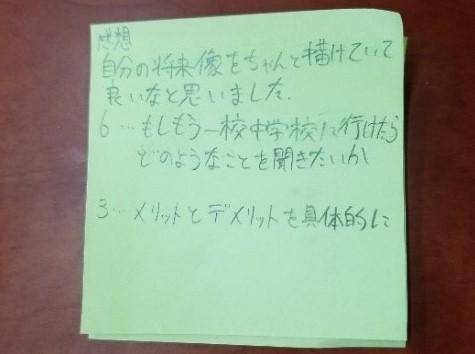 感想
自分の将来像をちゃんと描けていて
良いなと思いました.
6…もしもう一校中学校に行けたら
どのようなことを聞きたいか
3…メリットとデメリットを具体的に